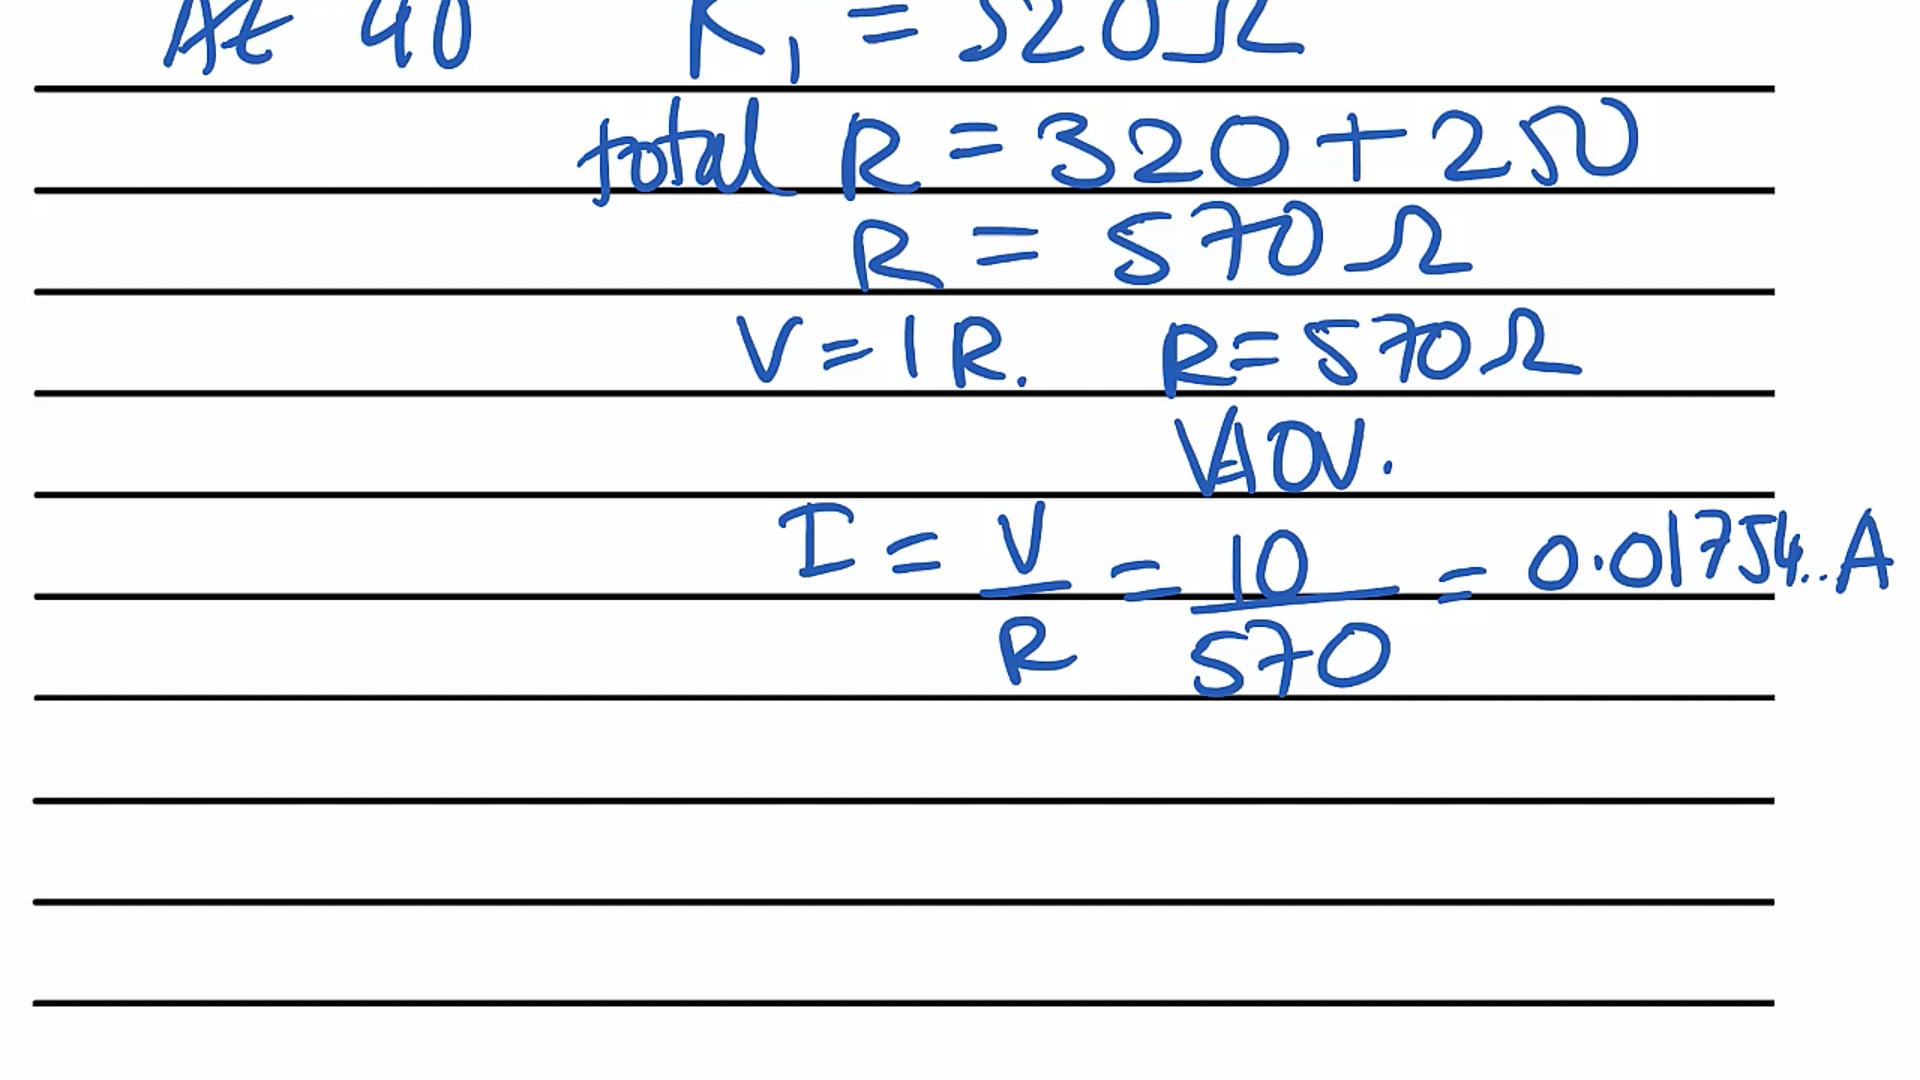 At 40 R₁ = 320Ω
total R = 320 + 250
R = 570Ω
V = IR. R = 570Ω
V=10V.
I = V/R = 10/570 = 0.01754.. A